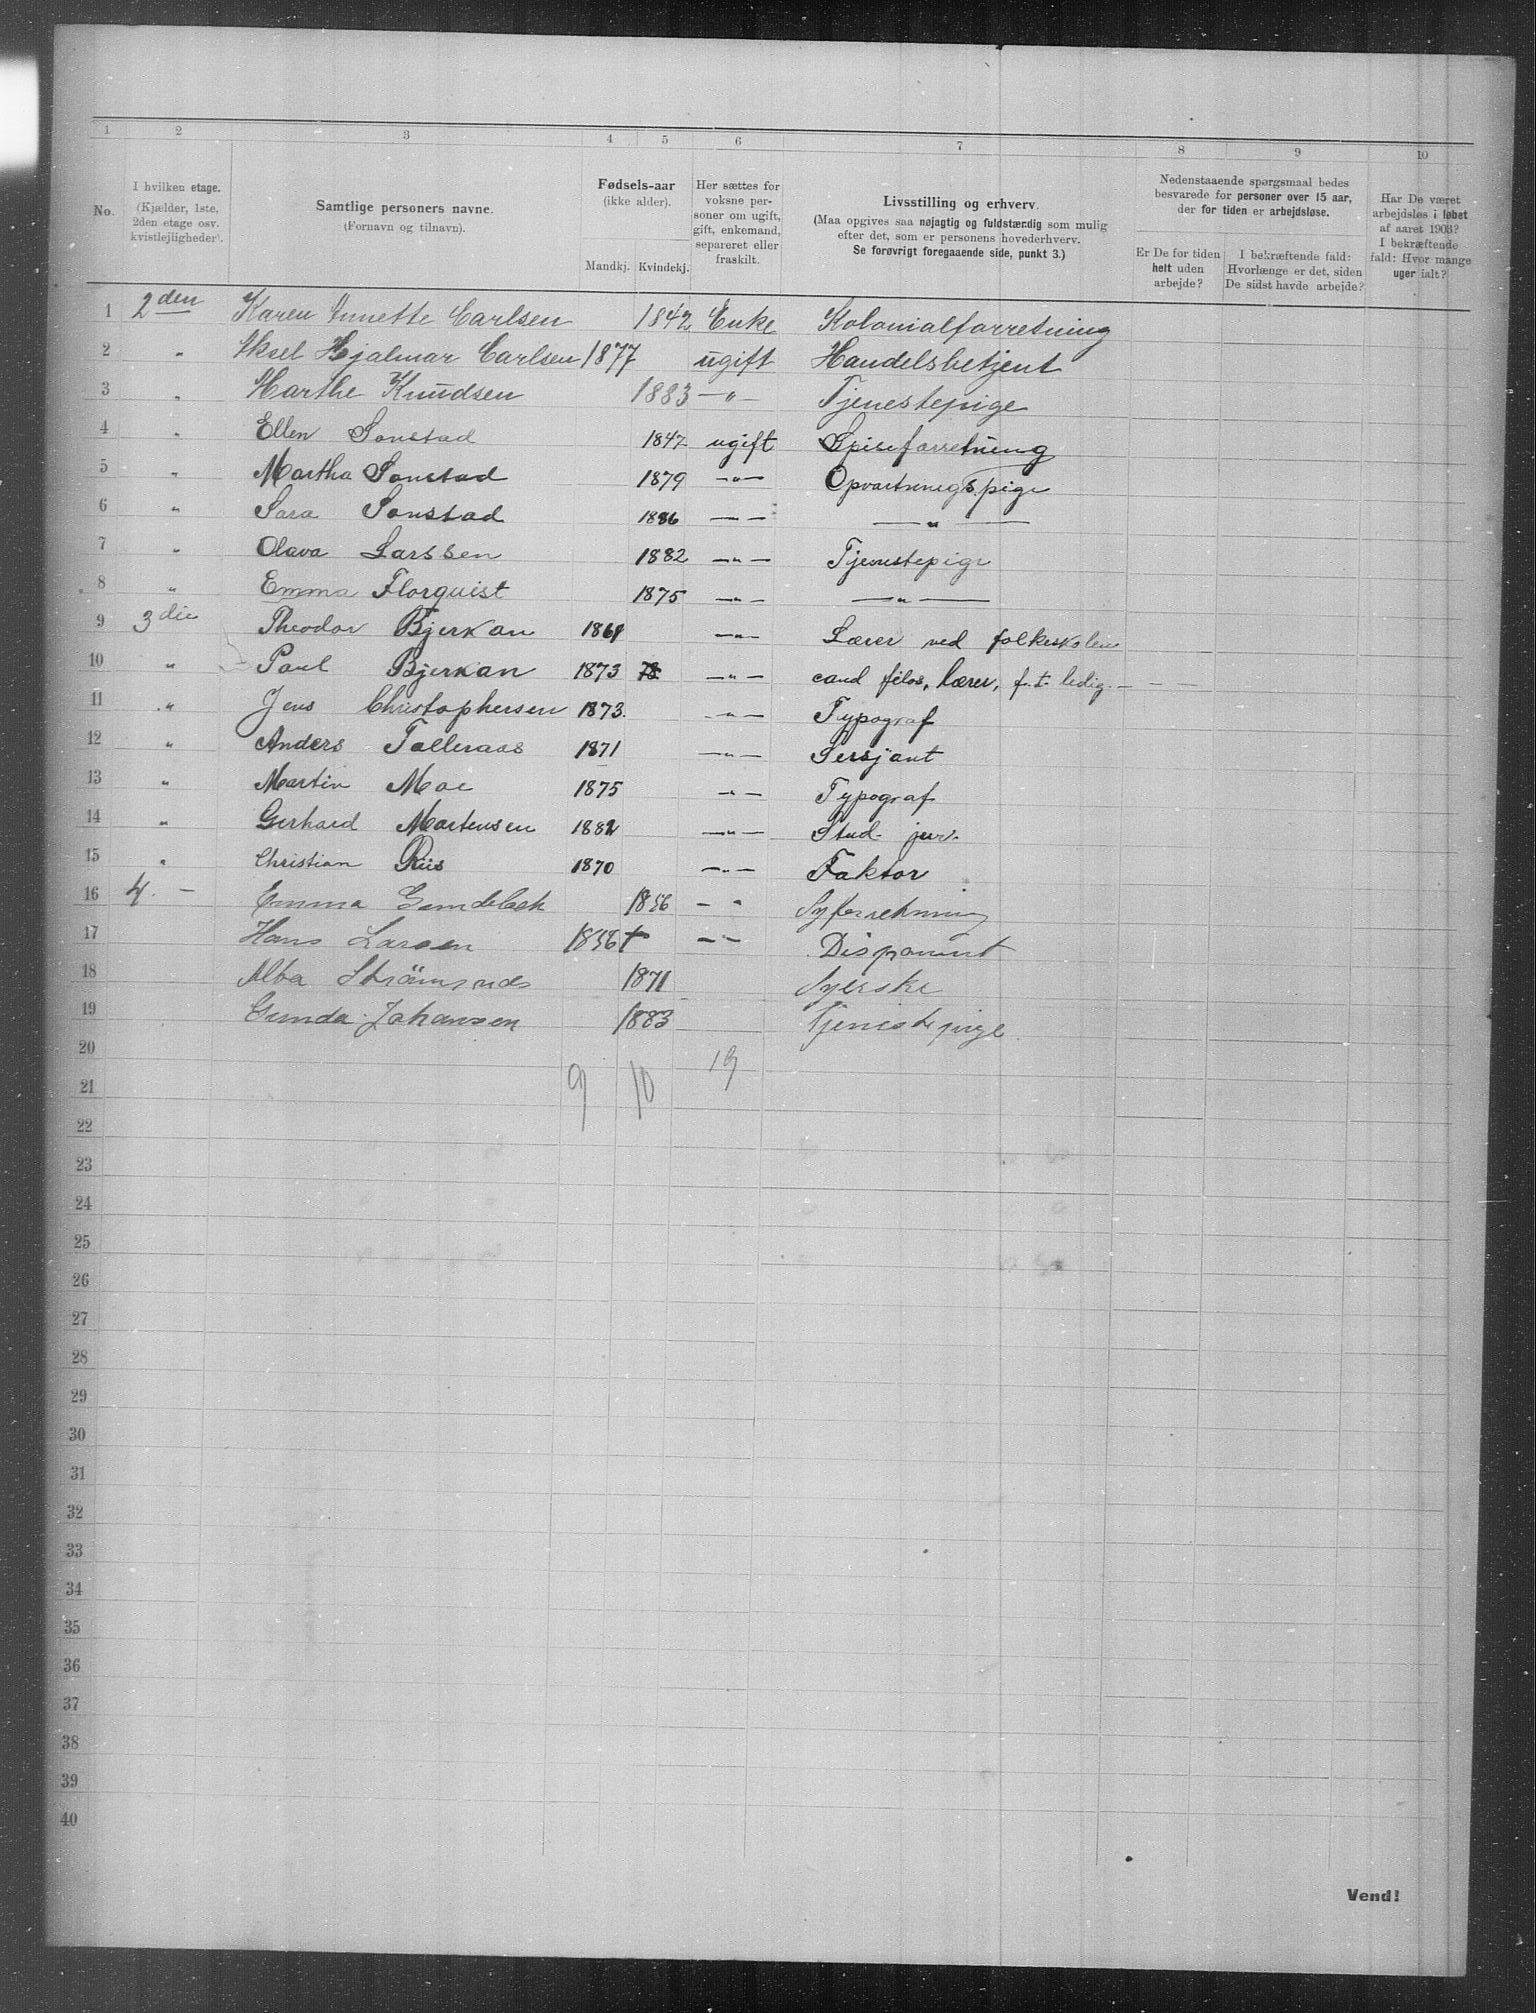 1 2 3 4 5 6 7 8 9 10
No.
I hvilken etage.
(Kjælder, 1ste,
2den etage osv.
kvistlejligheder).
Samtlige personers navne.
(Fornavn og tilnavn).
Fødsels-aar
(ikke alder).
Mandkj. Kvindekj.
Her sættes for
voksne per-
soner om ugift,
gift, enkemand,
separeret eller
fraskilt.
Livsstilling og erhverv.
(Maa opgives saa nøjagtig og fuldstændig som mulig
efter det, som er personens hovederhverv.
Se forøvrigt foregaaende side, punkt 3.)
Nedenstaaende spørgsmaal bedes
besvarede for personer over 15 aar,
der for tiden er arbejdsløse.
Er De for tiden
helt uden
arbejde?
I bekræftende fald:
Hvorlænge er det, siden
De sidst havde arbejde?
Har De været
arbejdsløs i løbet
af aaret 1903?
I bekræftende
fald: Hvor mange
uger ialt?
1 2den Karen Annette Carlsen 1842 Enke Kolonialforretning
2 " Aksel Hjalmar Carlsen 1877 ugift Handelsbetjent
3 " Marthe Knudsen 1883 — " — Tjenestepige
4 " Ellen Sonstad 1847 ugift Spiseforretning
5 " Martha Sonstad 1879 — " — Opvartningspige
6 " Sara Sonstad 1886 — " — — " —
7 " Olava Larssen 1882 — " — Tjenestepige
8 " Emma Florquist 1875 — " — — " —
9 3die Theodor Bjerkan 1861 — " — Lærer ved folkeskolen
10 " Paul Bjerkan 1873 — " — cand filos, lærer, f.t. ledig. —
11 " Jens Christophersen 1873. — " — Typograf
12 " Anders Tolleraas 1871 — " — Sersjant
13 " Martin Moe 1875 — " — Typograf
14 " Gerhard Martensen 1882 — " — Stud. jur.
15 " Christian Riis 1870 — " — Faktor
16 4. — Emma 1856 — " Syforretning
17 Hans Larsen 1856 — " — Disponent
18 Alba 1871 Syerske
19 Gunda Johansen 1883 Tjenestepige.
20
9 10 19
21
22
23
24
25
26
27
28
29
30
31
32
33
34
35
36
37
38
39
40
Vend!